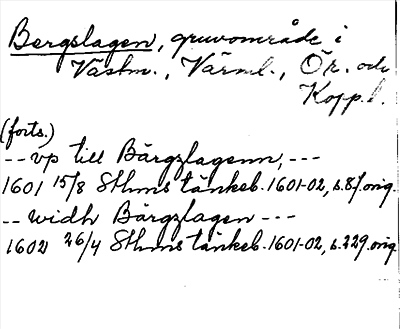 Bergslagen, gruvområde i
Västm., Värml., Ör. och
Kopp.l.
(forts.)
-- vp till Bärgzlagenn, ---
1601 15/8 Sthms tänkeb. 1601-02, s. 87. orig.
-- widh Bärgzlagen ---
1602 26/4 Sthms tänkeb. 1601-02, s. 229. orig.